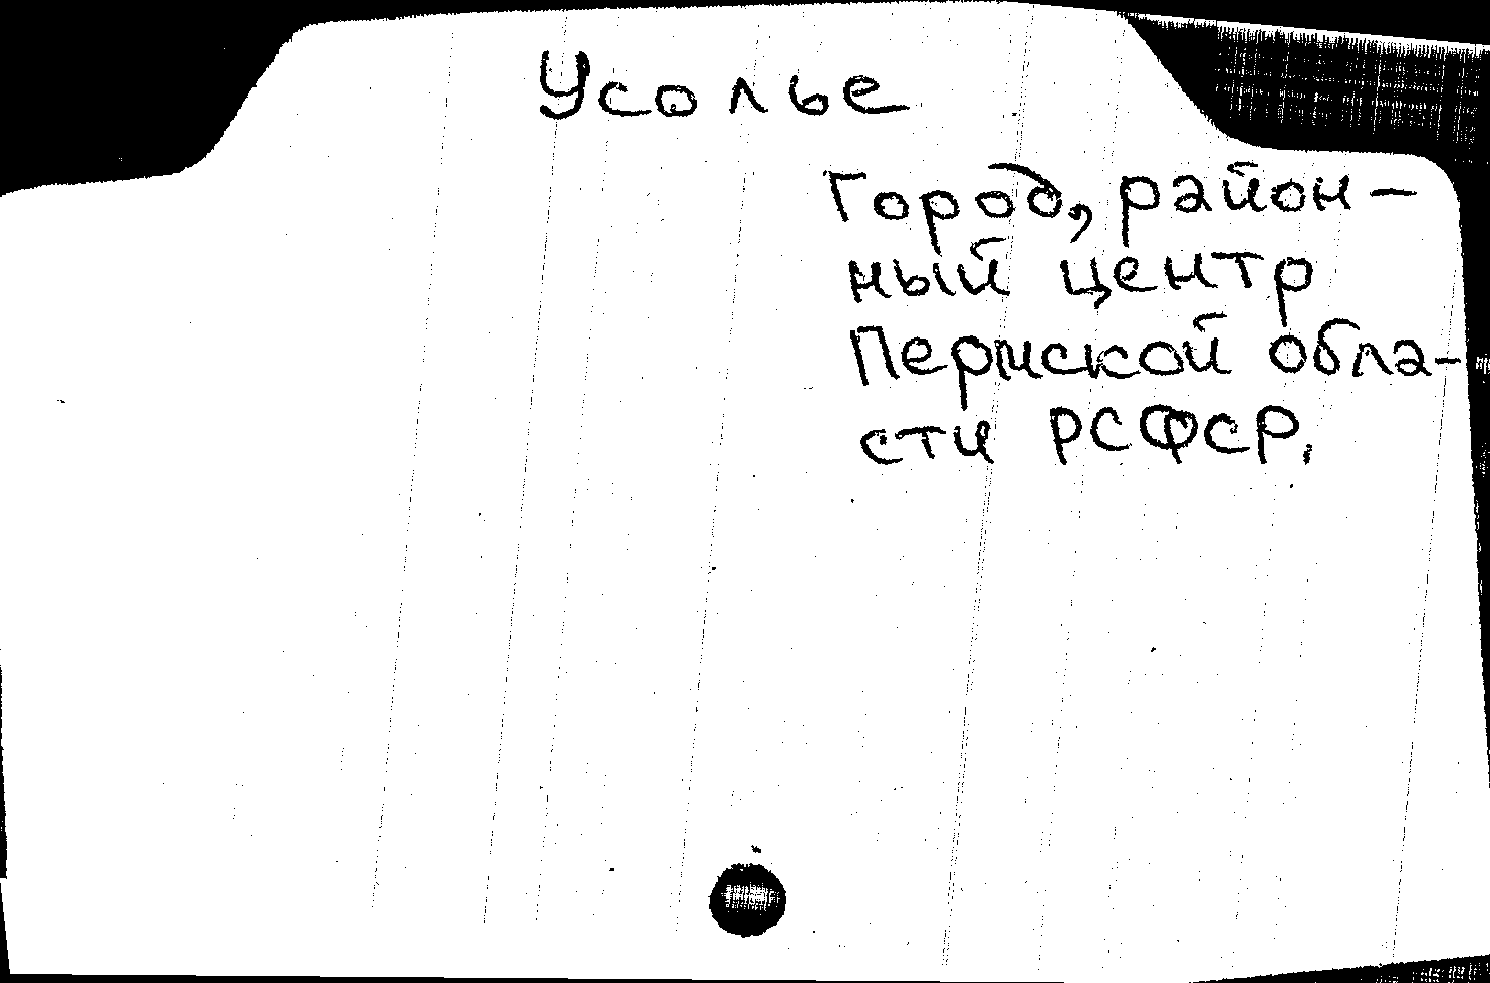 Усолье
Город, район-
ный центр
Пермской обла-
сти РСФСР.